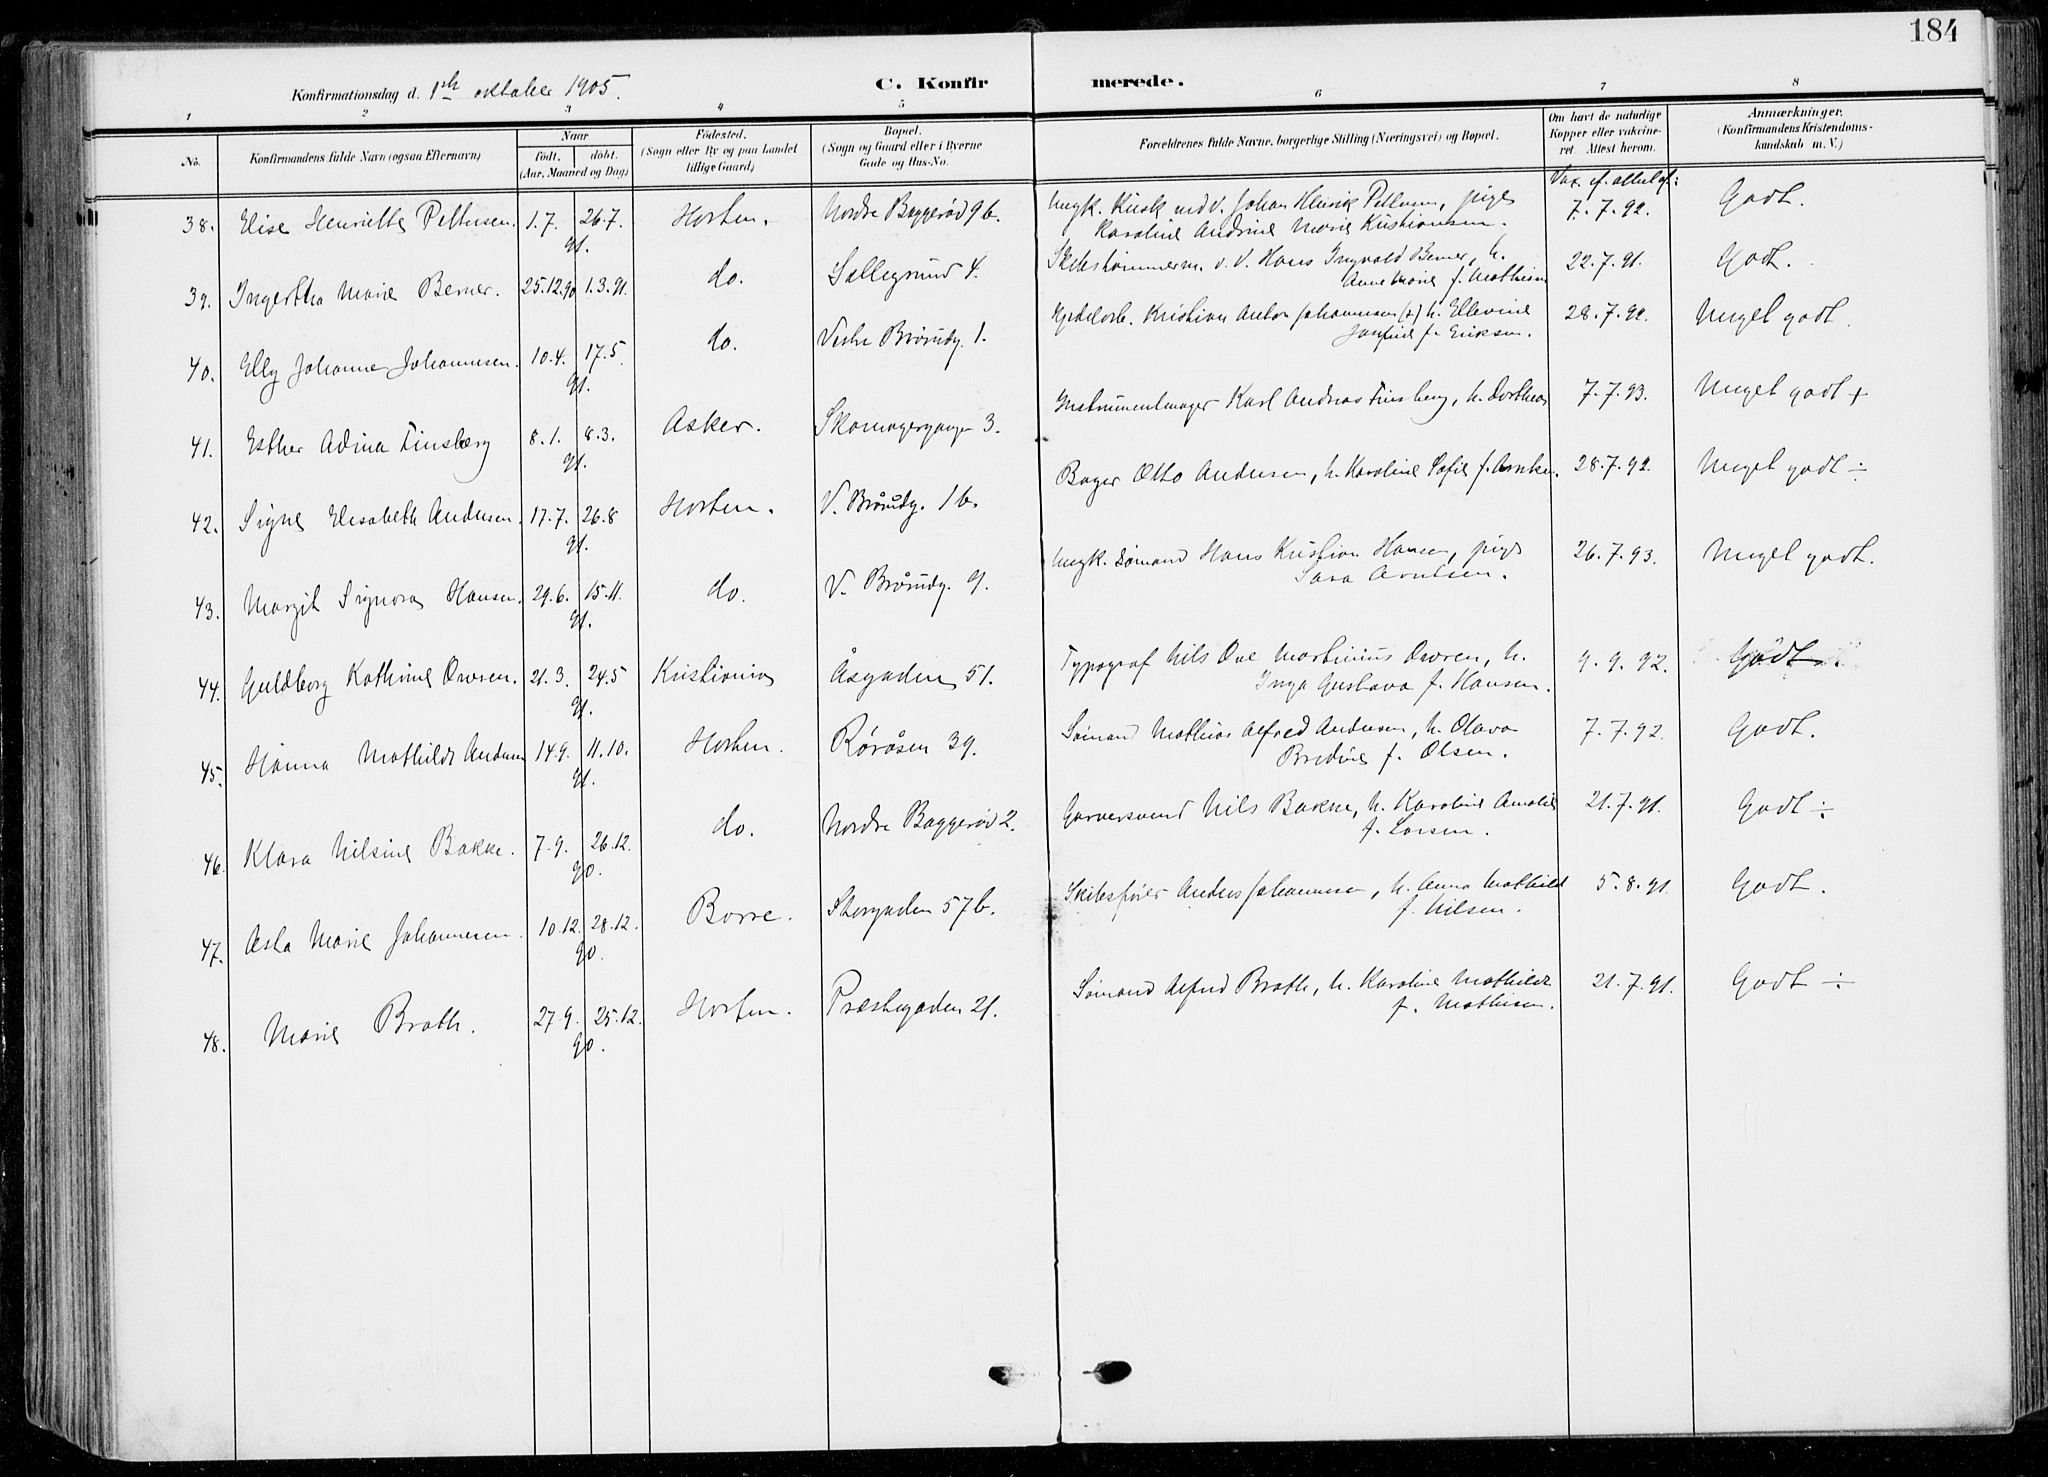 184
Konfirmationsdag d. 1ste oktober 1905.
C. Konfirmerede.
1 2 3 4 5 6 7 8
No. Konfirmandens fulde Navn (ogsaa Efternavn) Naar født. døbt. (Aar, Maaned og Dag) Fødested. (Sogn eller By og paa Landet tillige Gaard) Bopæl. (Sogn og Gaard eller i Byerne Gade og Hus-No. Forældrenes fulde Navne, borgerlige Stilling (Næringsvei) og Bopæl. Om havt de naturlige Kopper eller vakcineret. Attest herom. Anmærkninger. (Konfirmandens Kristendomskundskab m. V.)
Vax. e. attest af:
38. Elise Henriette Pettersen. 1.7. 26.7. 91. Horten. Nordre Baggerød 9 b. Ungk. Kusk ved V. Johan Henrik Pettersen, pige 7.7.92. Godt.
Karoline Andrine Marie Kristiansen.
39. Ingertha Marie Berner. 25.12.90 1.3.91. do. Sællegrund 4. Skibstømmerm. v. V. Hans Ingvald Berner, h. 22.7.91. Godt.
Anne Marie f. Mathisen
40. Elly Johanne Johannesen. 10.4. 17.5. 91. do. Vestre Brårudg. 1. Kjedelarb. Kristian Anton Johannesen (+) h. Ellevine 28.7.92. Meget godt.
Josefine f. Eriksen.
41. Esther Adina Finsberg 8.1. 8.3. 91. Asker. Skomagergangen 3. Instrumentmager Karl Andreas Finsberg, h. Dorthea 7.7.93. Meget godt +
42. Signe Elisabeth Andersen. 17.7. 26.8 91. Horten. V. Brårudg. 1 b. Bager Otto Andersen, h. Karoline Sofie f. 28.7.92. Meget godt ÷
43. Margit Signora Hansen. 29.6. 15.11. 91. do. V. Brårudg. 9. Ungk. Sømand Hans Kristian Hansen, pige 26.7.93. Meget godt.
Sara Arntsen.
44. Guldborg Kathrine Owren. 21.3. 24.5 91. Kristiania Åsgaden 51. Typograf Nils Ove Martinius Owren, h. 9.9.92. Godt.
Inga Gustava f. Hansen.
45. Hanna Mathilde Andersen 14.9. 11.10. 91. Horten. Røråsen 39. Sømand Mathias Alfred Andersen, h. Olava 7.7.92. Godt.
Bredine f. Olsen.
46. Klara Nilsine Bakke. 7.9. 26.12. 90. do. Nordre Baggerød 2. Garversvend Nils Bakke, h. Karoline Amalie 21.7.91. Godt ÷
f. Larsen.
47. Asta Marie Johannesen. 10.12. 28.12. 90. Borre. Storgaden 57 b. Skibsfører Anders Johannesen, h. Anna Mathilde 5.8.91. Godt.
f. Nilsen.
48. Marie Brath. 27.9. 25.12. 90. Horten. Prestegaden 21. Sømand Alfred Brath, h. Karoline Mathilde 21.7.91. Godt ÷
f. Mathisen.